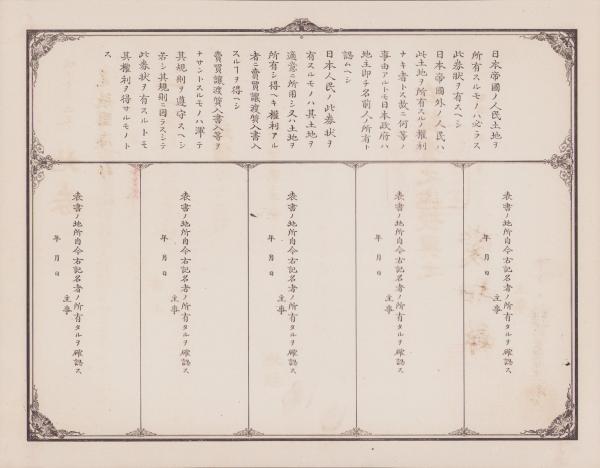 日本帝國ノ人民土地ヲ
所有スルモノハ必ラス
此券狀ヲ有スヘシ
日本帝國外ノ人民ハ
此土地ヲ所有スルノ權利
ナキ者トス故ニ何等ノ
事由アルトモ日本政府ハ
地主即チ名前人ノ所有ト
認ムヘシ
日本人民ノ此券狀ヲ
有スルモノハ其土地ヲ
適意ニ所用シ又ハ土地ヲ
所有シ得ヘキ權利アル
者ニ賣買讓渡質入書入
スルヿヲ得ヘシ
賣買讓渡質入書入等ヲ
ナサントスルモノハ渾テ
其規則ヲ遵守スヘシ
若シ其規則ニ因ラスシテ
此券狀ヲ有スルトモ
其權利ヲ得サルモノト
ス
表書ノ地所自今右記名者ノ所有タルヲ確認ス
年 月 日
主事
表書ノ地所自今右記名者ノ所有タルヲ確認ス
年 月 日
主事
表書ノ地所自今右記名者ノ所有タルヲ確認ス
年 月 日
主事
表書ノ地所自今右記名者ノ所有タルヲ確認ス
年 月 日
主事
表書ノ地所自今右記名者ノ所有タルヲ確認ス
年 月 日
主事